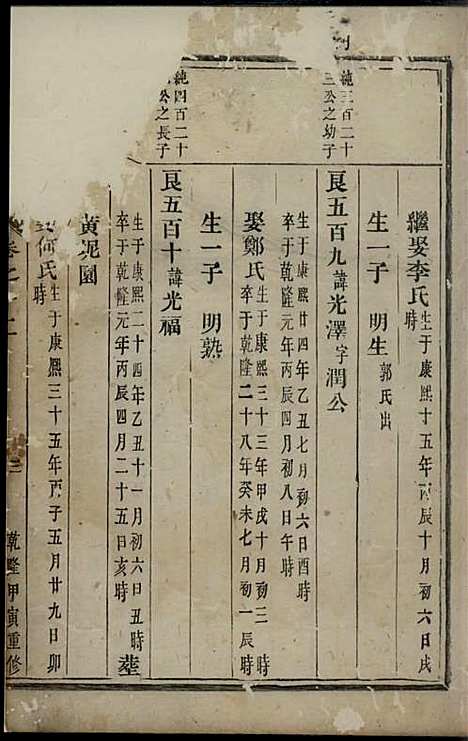 繼娶李氏生于康熙十五年丙辰十月初六日戌時
生一子 明生郭氏出
純三百二十三公之幼子
良五百九諱光澤字潤公
生于康熙廿四年乙丑七月初六日酉時
卒于乾隆元年丙辰四月初八日午時
娶鄭氏生于康熙三十三年甲戌十月初三時
卒于乾隆二十八年癸未七月初一辰時
生一子 明熟
純四百二十公之長子
良五百十諱光福
生于康熙二十四年乙丑十一月初六日丑時
卒于乾隆元年丙辰四月二十五日亥時 塟
黃泥園
何氏生于康熙三十五年丙子五月廿九日卯時
卷之 三 乾隆甲寅重修